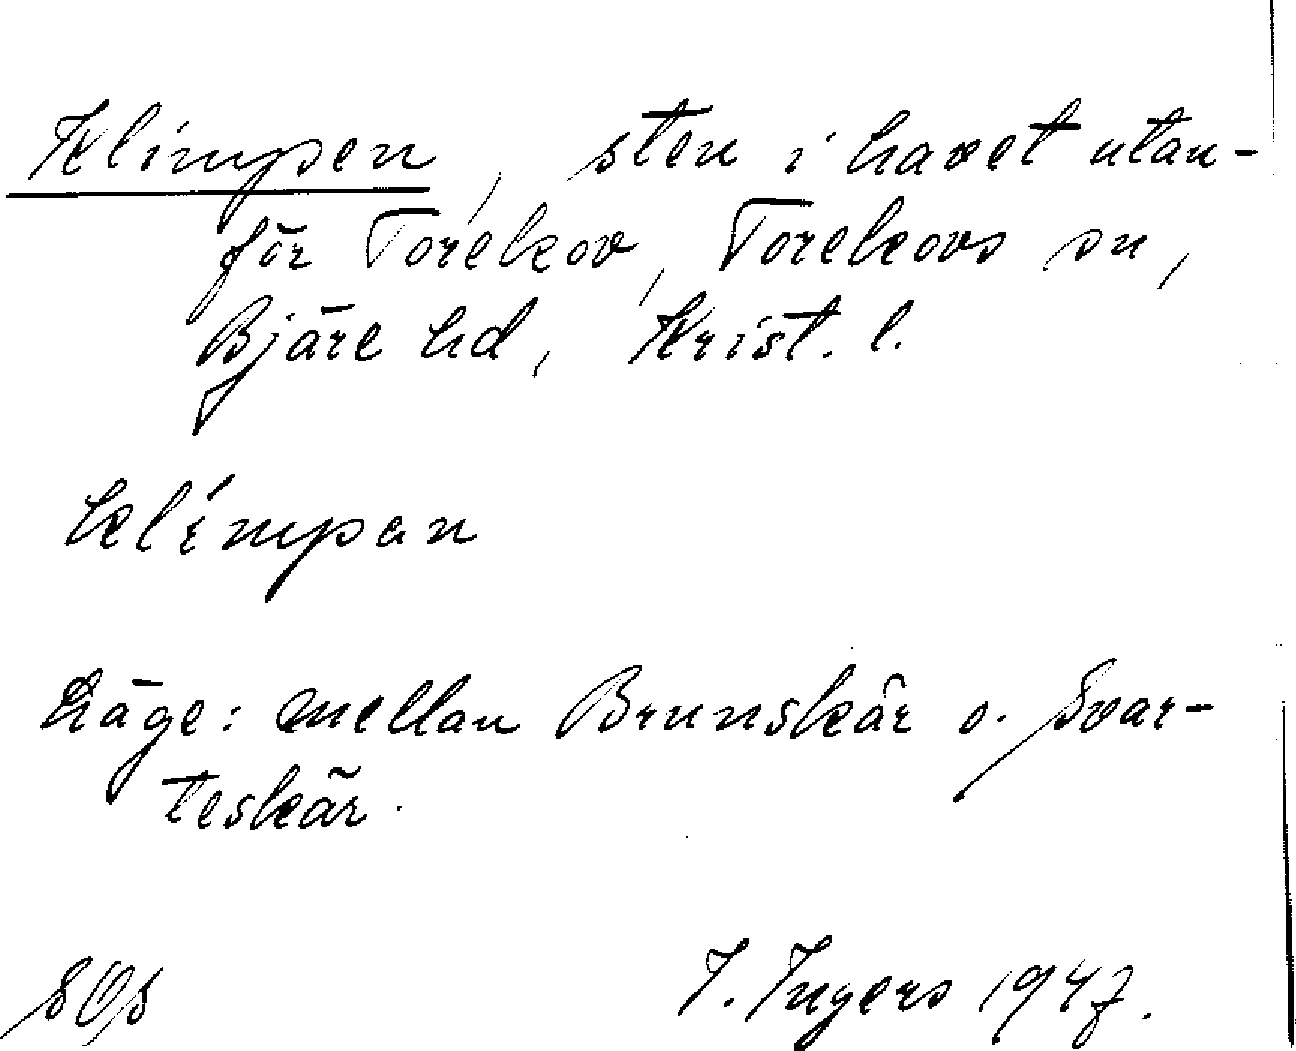 Klimpen, sten i havet utan-
för Torekov, Torekovs sn,
Bjäre hd, Krist. l.
klímpan
Läge: mellan Brunskär o. Svar-
teskär.
SOS I. Ingers 1947.